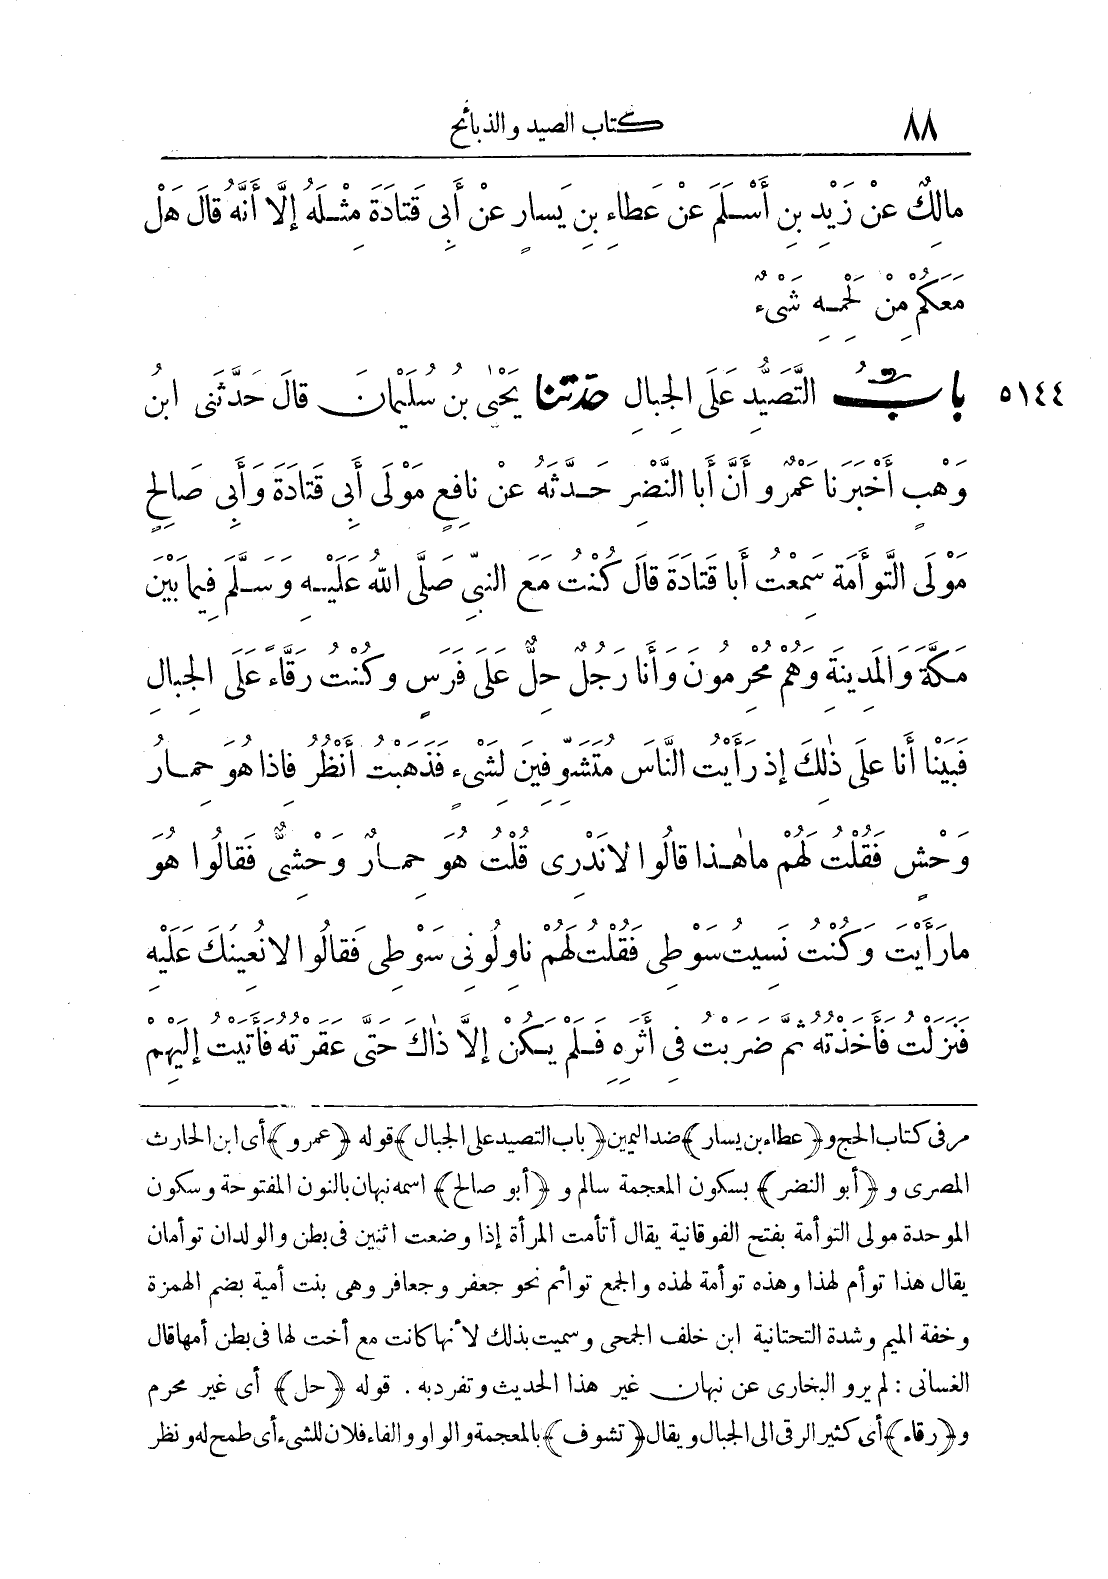 ٨٨ كتاب الصيد والذبائح
مالِكٌ عنْ زَيْدِ بنِ أَسْلَمَ عنْ عَطاءِ بنِ يَسارٍ عنْ أَبِى قَتادَةَ مِثْلَهُ إِلَّا أَنَّهُ قالَ هَلْ
مَعَكُمْ مِنْ لَحْمِهِ شَىْءٌ
٥١٤٤ بابُ التَّصَيُّدِ عَلَى الجِبالِ حدّثنا يَحْيٰى بنُ سُلَيْمانَ قالَ حَدَّثَنِى ابنُ
وَهْبٍ أَخْبَرَنا عَمْرٌو أَنَّ أَبا النَّضْرِ حَدَّثَهُ عنْ نافِعٍ مَوْلَى أَبِى قَتادَةَ وَأَبِى صَالِحٍ
مَوْلَى التَّوأَمَةِ سَمِعْتُ أَبا قَتادَةَ قالَ كُنْتُ مَعَ النبِىِّ صَلَّى اللهُ عَلَيْهِ وَسَلَّمَ فِيما بَيْنَ
مَكَّةَ وَالمَدِينَةِ وَهُمْ مُحْرِمُونَ وَأَنا رَجُلٌ حِلٌّ عَلَى فَرَسٍ وكُنْتُ رَقَّاءً عَلَى الجِبالِ
فَبَيْنا أَنا على ذٰلِكَ إذ رَأَيْتُ النَّاسَ مُتَشَوِّفِينَ لشَىْءٍ فَذَهَبْتُ أَنْظُرُ فاذا هُوَ حِمارُ
وَحْشٍ فَقُلْتُ لَهُمْ ماهٰذا قالُوا لانَدْرِى قُلْتُ هُوَ حِمارٌ وَحْشِىٌّ فَقالُوا هُوَ
مارَأَيْتَ وَكُنْتُ نَسِيتُ سَوْطِى فَقُلْتُ لَهُمْ ناوِلُونِى سَوْطِى فَقالُوا لانُعِينُكَ عَلَيْهِ
فَنَزَلْتُ فأَخَذْتُهُ ثُمَّ ضَرَبْتُ فِى أَثَرِهِ فَلَمْ يَكُنْ إلَّا ذٰاكَ حَتَّى عَقَرْتُهُ فَأَتَيْتُ إِلَيْهِمْ
مر فى كتاب الحج و ﴿عطاء بن يسار﴾ ضد اليمين ﴿باب التصيد على الجبال﴾ قوله ﴿عمرو﴾ أى ابن الحارث
المصرى و ﴿أبو النضر﴾ بسكون المعجمة سالم و ﴿أبو صالح﴾ اسمه نبهان بالنون المفتوحة وسكون
الموحدة مولى التوأمة بفتح الفوقانية يقال أتأمت المرأة إذا وضعت اثنين فى بطن والولدان توأمان
يقال هذا توأم لهذا وهذه توأمة لهذه والجمع توائم نحو جعفر وجعافر وهى بنت أمية بضم الهمزة
وخفة الميم وشدة التحتانية ابن خلف الجمحى وسميت بذلك لأنها كانت مع أخت لها فى بطن أمها قال
الغسانى : لم يرو البخارى عن نبهان غير هذا الحديث وتفرد به . قوله ﴿حل﴾ أى غير محرم
و﴿رقاء﴾ أى كثير الرقى الى الجبال ويقال ﴿تشوف﴾ بالمعجمة والواو والفاء فلان للشىء أى طمح له ونظر